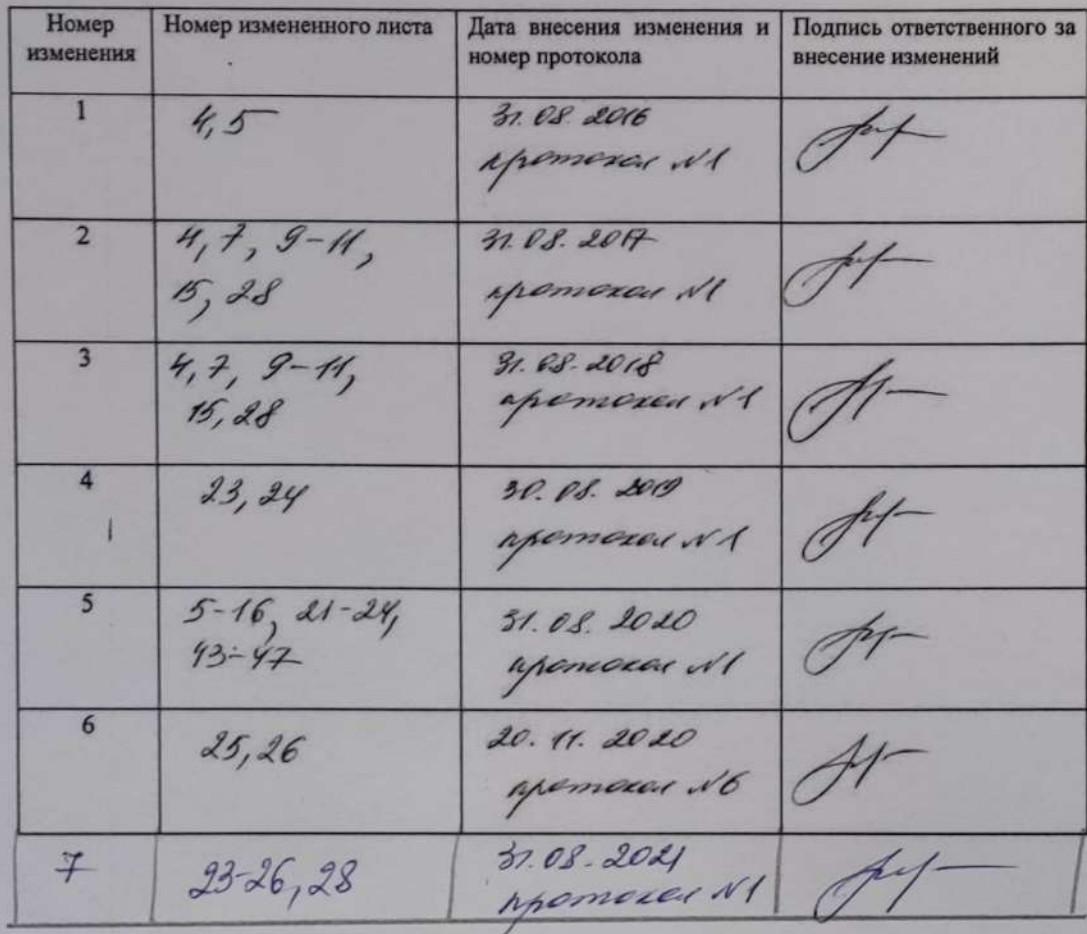 Номер изменения
Номер измененного листа
Дата внесения изменения и номер протокола
Подпись ответственного за внесение изменений
1
4, 5
31.08.2016
протокол №1
2
4, 7, 9-11,
15, 28
31.08.2017
протокол №1
3
4, 7, 9-11,
15, 28
31.08.2018
протокол №1
4
23, 24
30.08.2019
протокол №1
5
5-16, 21-24,
43-47
31.08.2020
протокол №1
6
25, 26
20.11.2020
протокол №6
7
23-26, 28
31.08.2021
протокол №1